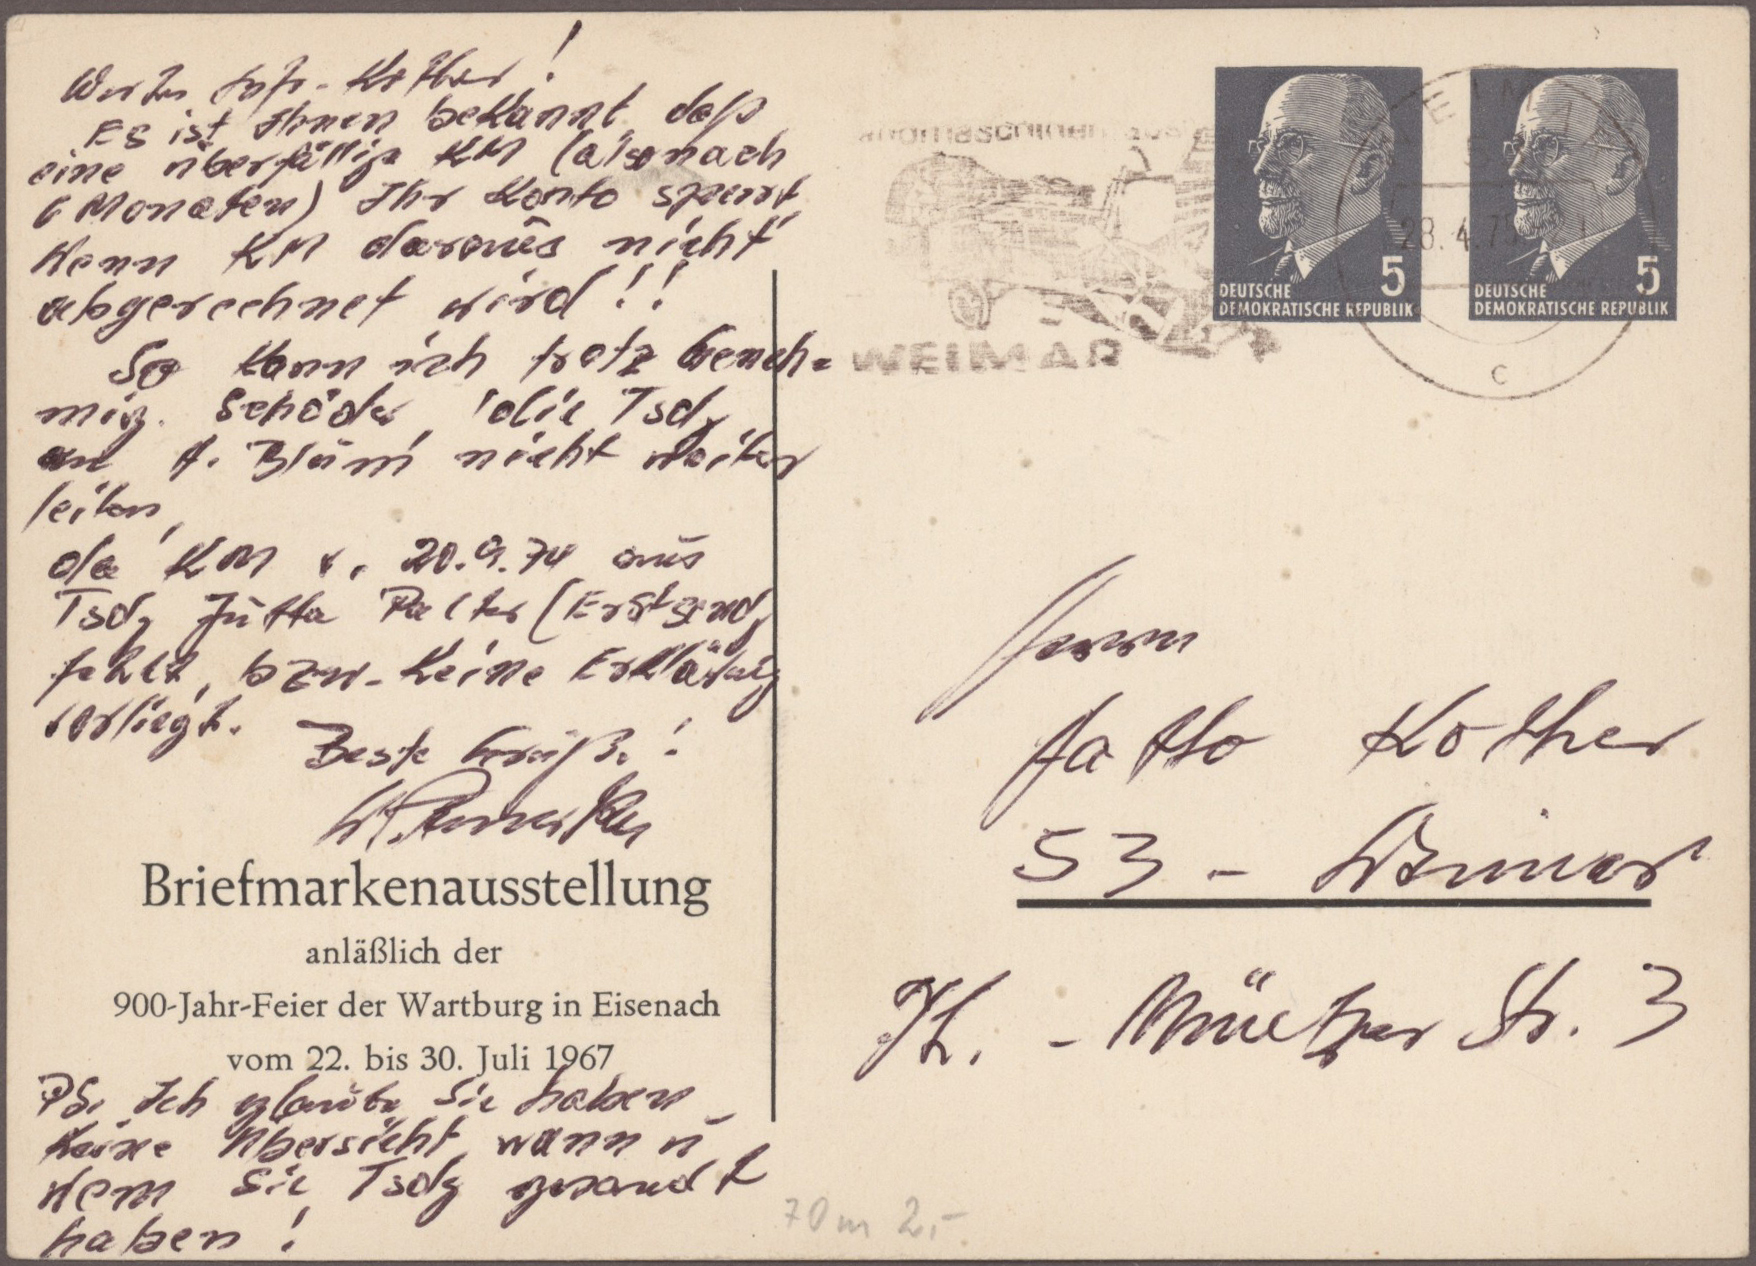 Werter Sfr. Kother!
Es ist Ihnen bekannt daß
eine überfällige KM (also nach
6 Monaten) Ihr Konto sperrt
wenn KM daraus nicht
abgerechnet wird!!
So kann ich trotz Geneh-
mig. die Tsdg
an A. Blüm nicht weiter
leiten,
da KM v. 20.9.74 aus
Tsdg Jutta (Erstsendg
fehlt, bzw. keine Erklärung
vorliegt.
Beste Grüße!
Briefmarkenausstellung
anläßlich der
900-Jahr-Feier der Wartburg in Eisenach
vom 22. bis 30. Juli 1967
PS. Ich glaube Sie haben
keine Übersicht, wann u
wem Sie Tsdg gesandt
haben!
WEIMAR
DEUTSCHE
DEMOKRATISCHE REPUBLIK
5
DEUTSCHE
DEMOKRATISCHE REPUBLIK
5
28.4.75
c
Herrn
Hatto Kother
53 - Weimar
Th. - Müntzer Str. 3
70m 2,-